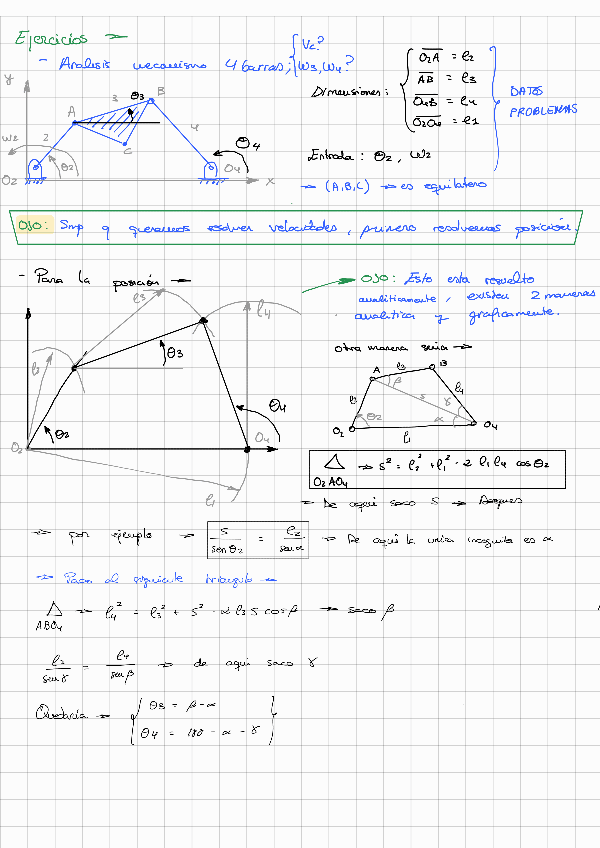 Ejercicios →
- Analisis mecanismo 4 barras; { Vc? ω3, ω4?
Dimensiones: { O2A = l2
AB = l3
O4B = l4
O2O4 = l1
DATOS
PROBLEMAS
Entrada: θ2, ω2
→ (A,B,C) → es equilatero
y
A
3
θ3
B
ω2
2
C
4
θ4
θ2
O2
O4
x
OJO: Smp q queramos resolver velocidades, primero resolvemos posición.
- Para la posición →
l3
l4
l2
θ3
θ4
θ2
O2
O4
l1
OJO: Esto esta resuelto
analiticamente, existen 2 maneras
analitica y graficamente.
Otra manera seria →
A
l3
B
β
l3
s
l4
γ
θ2
α
O2
l1
O4
△ → s² = l2² + l1² · 2 l1 l4 cos θ2
O2AO4
→ De aqui saco S →
→ por ejemplo → s / sen θ2 = l2 / sen α → De aqui la unica incognita es α
→ Para el siguiente triangulo →
△ → l4² = l3² + s² · 2 l3 s cos β → saco β
ABO4
l3 / sen γ = l4 / sen β → de aqui saco γ
Quedaria → { θ3 = β - α
θ4 = 180 - α - γ }